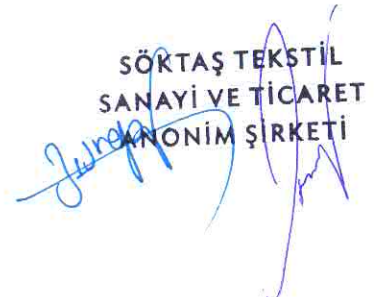 SÖKTAŞ TEKSTİL
SANAYİ VE TİCARET
ANONİM ŞİRKETİ